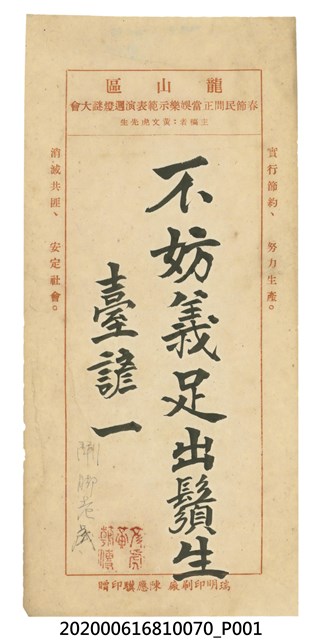 龍山區
春節民間正當娛樂示範表演週燈謎大會
主稿者：黃文虎先生
實行節約、努力生產。
不妨義足出鬚生
臺諺一
消滅共匪、安定社會。
瑞明印刷廠 陳應驥印贈
202000616810070_P001